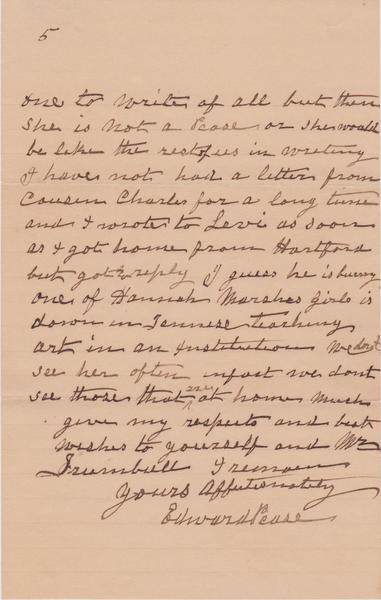 5
one to write of all but then
she is not a Pease or she would
be like the rest of us in writing
I have not had a letter from
Cousin Charles for a long time
and I wrote to Levi as soon
as I got home from Hartford
but got no reply I guess he is busy
one of Hannah Marshes girls is
down in Tennese teaching
art in an Institution We dont
see her often infact we dont
see those that are at home much
give my respects and best
wishes to yourself and Mr
Trumbull I remain
Yours Affectionately
Edward Pease